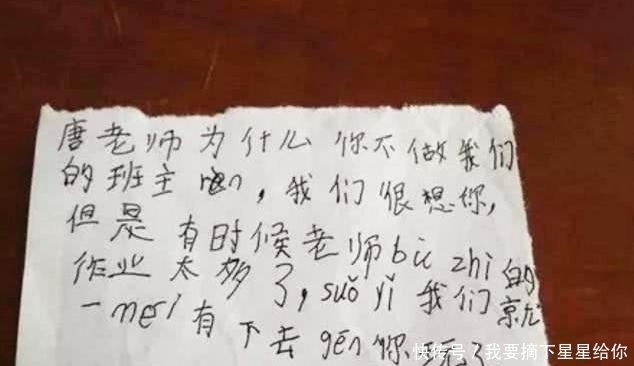 唐老师为什么你不做我们
的班主ren，我们很想你，
但是有时候老师bù zhi的
作业太多了，suǒ yǐ我们就
一mei有下去gēn你玩了
快传号／我要摘下星星给你